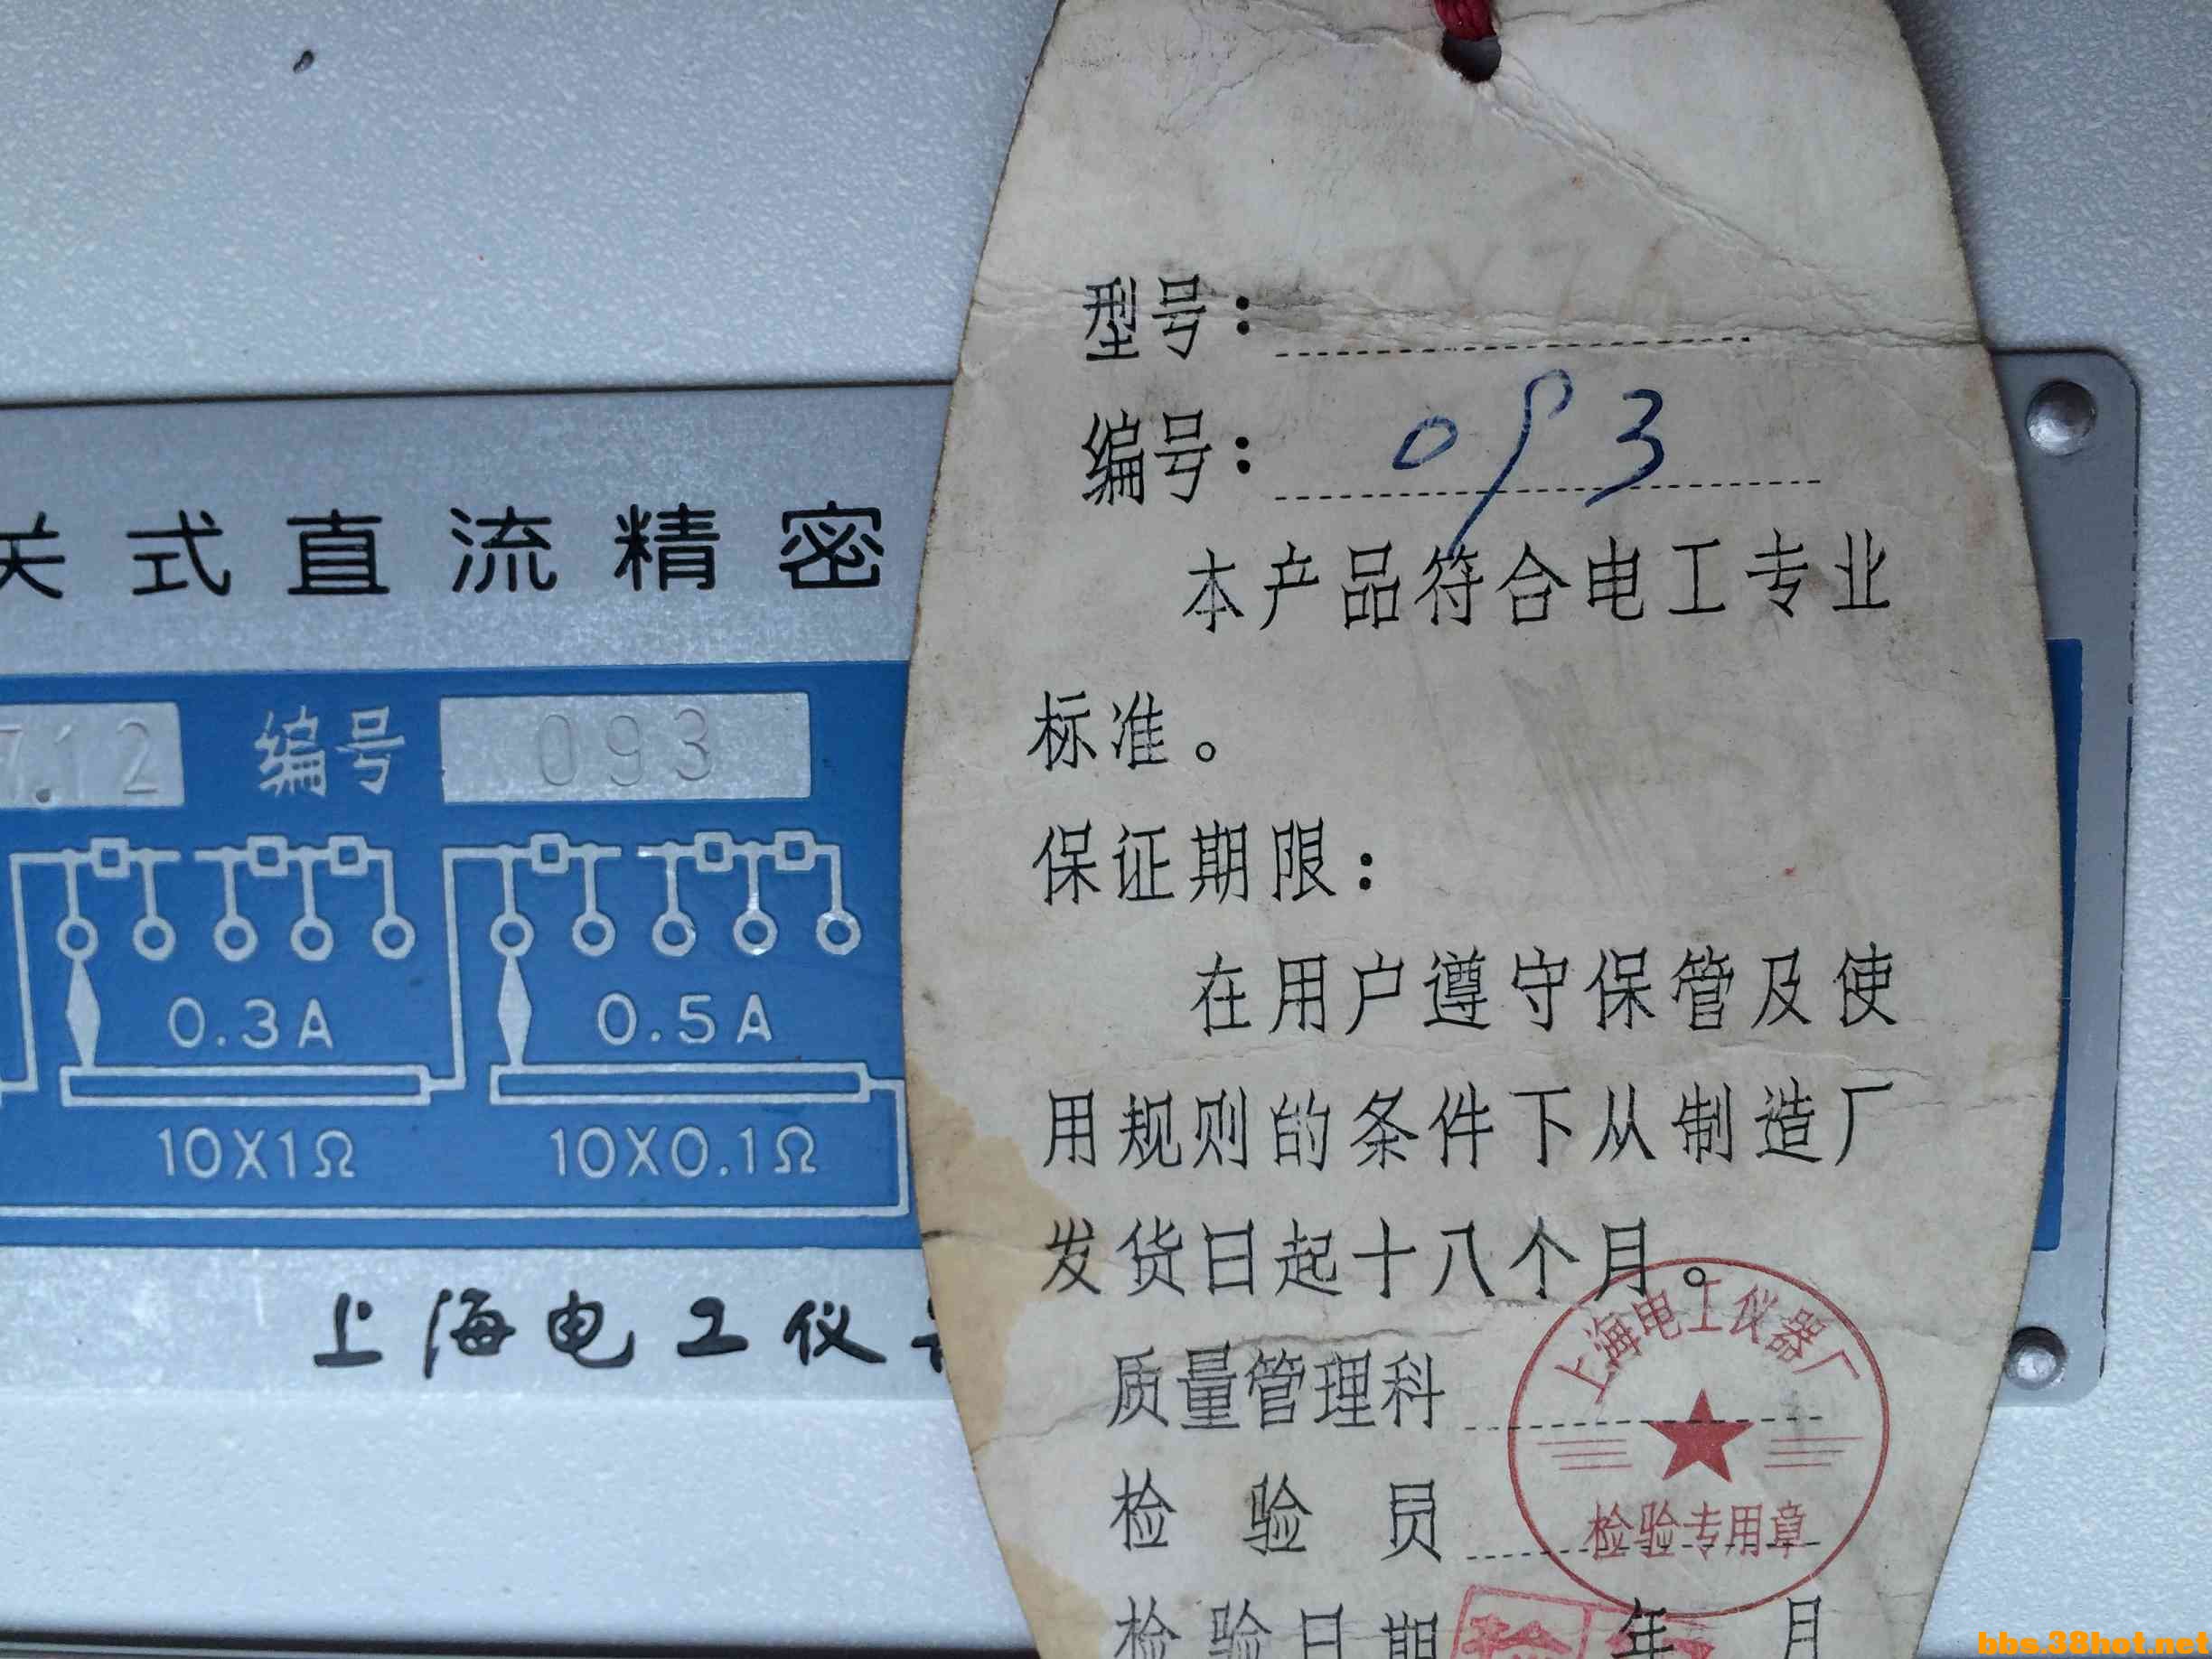 关式直流精密
7.12 编号 093
0.3A 0.5A
10X1Ω 10X0.1Ω
上海电工仪
型号：
编号： 093
本产品符合电工专业
标准。
保证期限：
在用户遵守保管及使
用规则的条件下从制造厂
发货日起十八个月。
质量管理科
检验员
检验日期 年 月
上海电工仪器厂
检验专用章
bbs.38hot.net